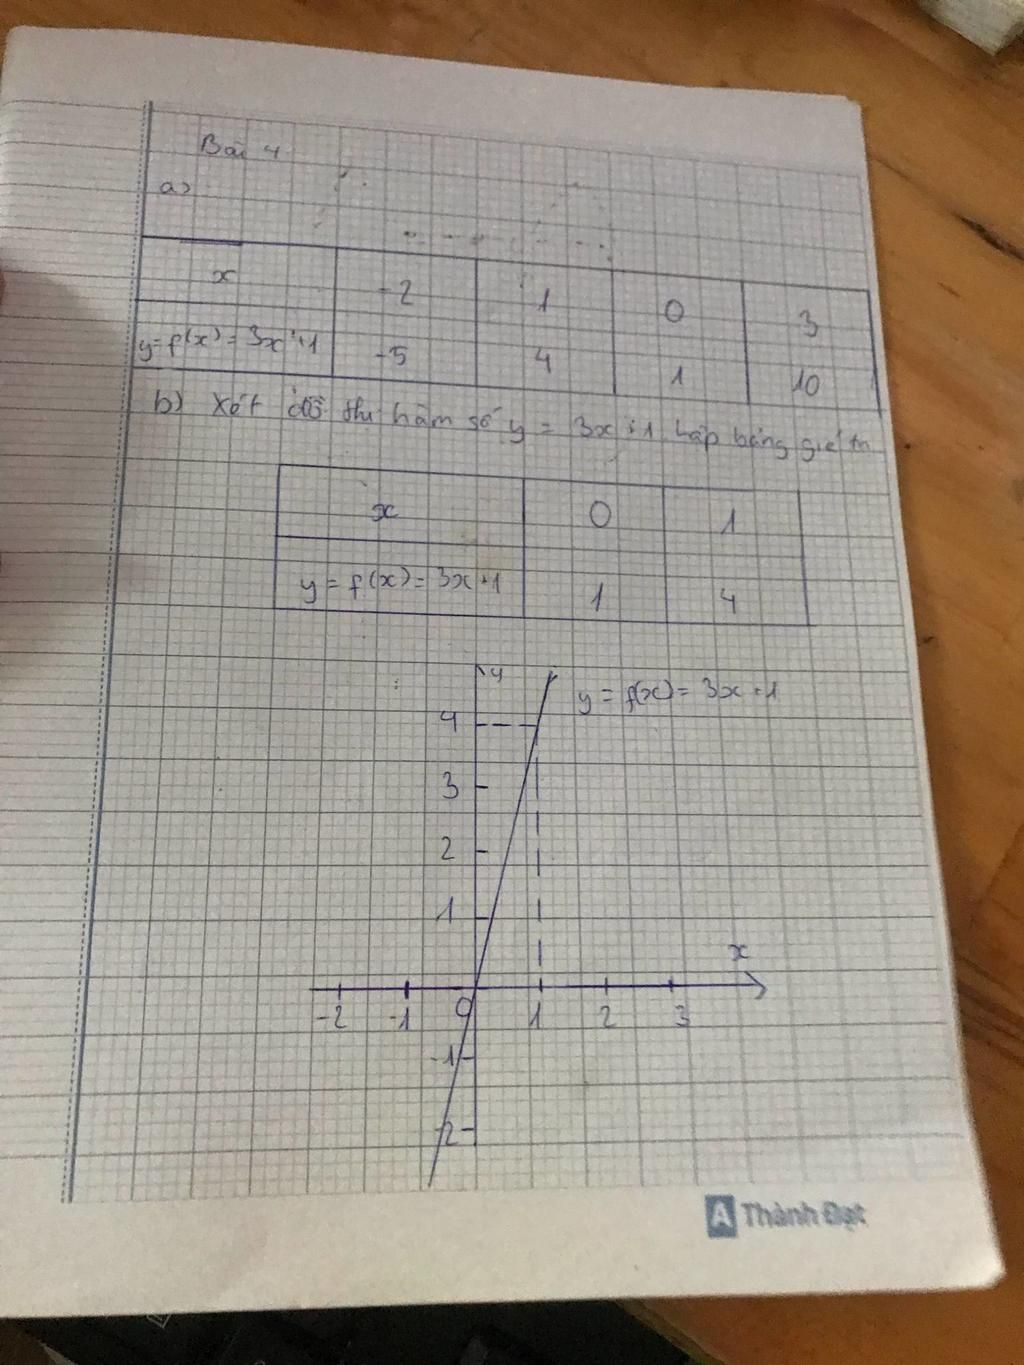 Bài 4
a)
x -2 1 0 3
y=f(x)=3x+1 -5 4 1 10
b) Xét đồ thị hàm số y = 3x+1 Lập bảng giá trị
x 0 1
y = f(x) = 3x+1 1 4
y
y = f(x) = 3x+1
4
3
2
1
x
-2 -1 O 1 2 3
-1
-2
A Thành Đạt